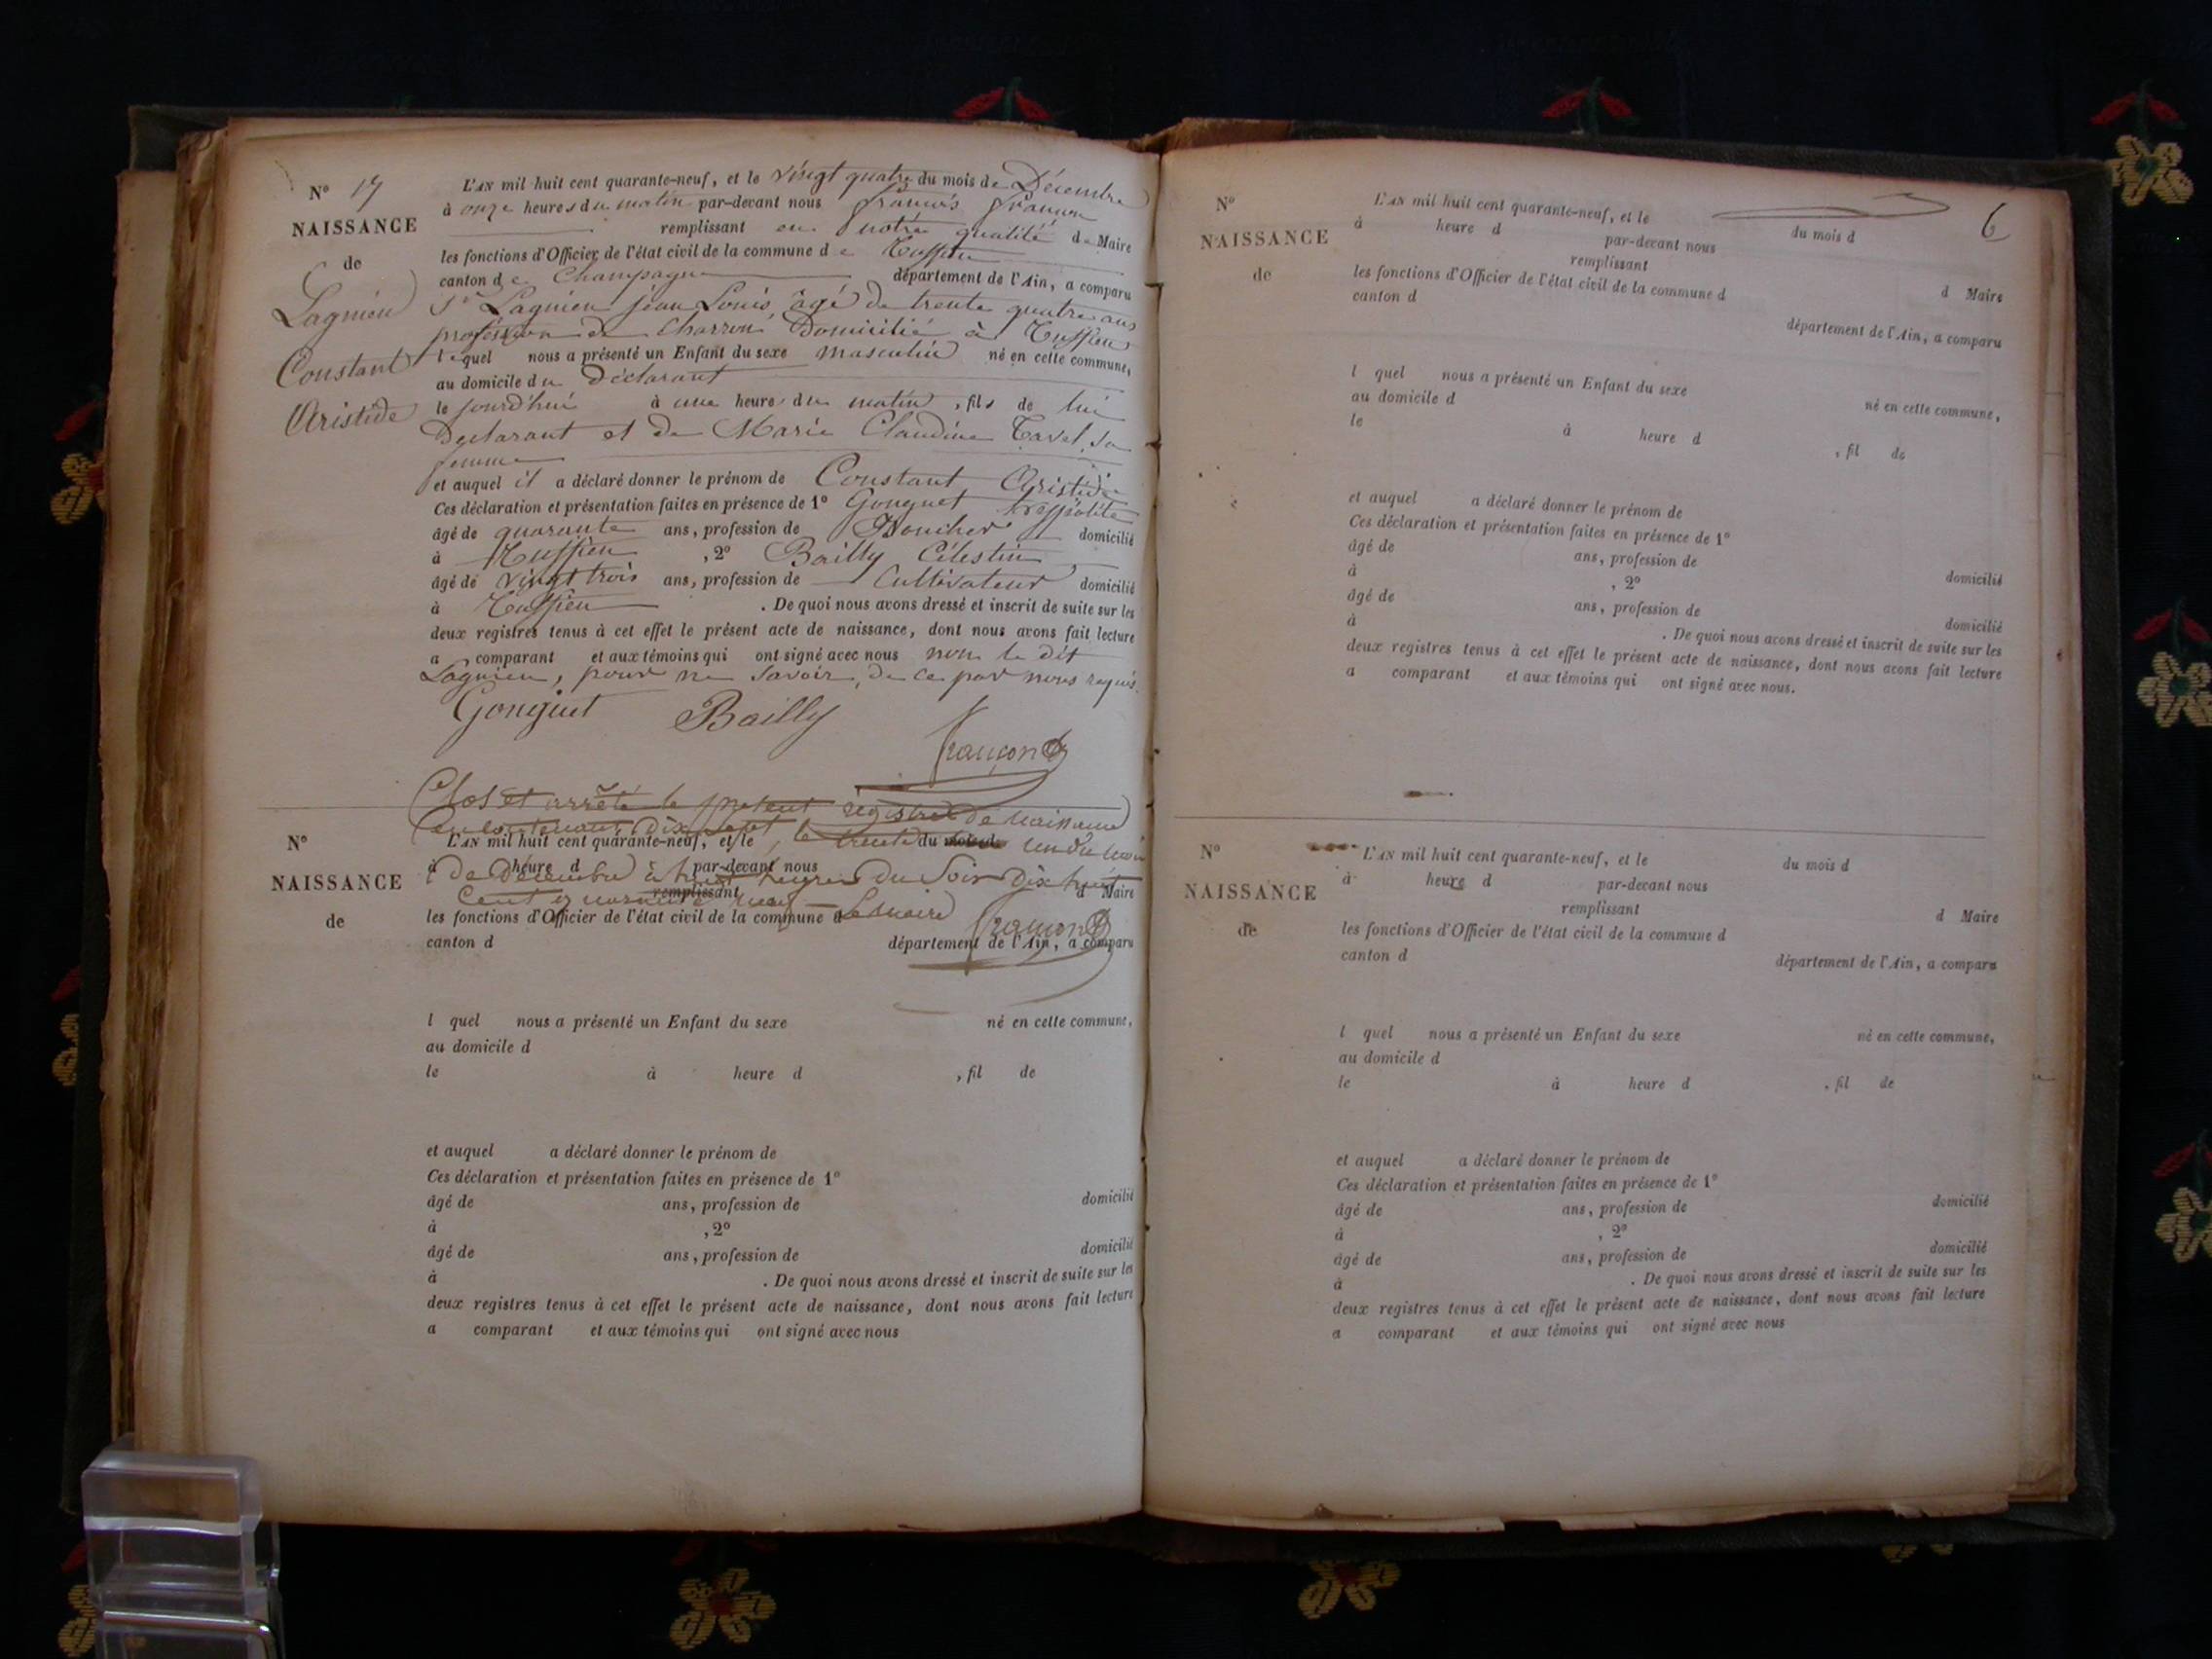 N° 17
NAISSANCE
de
Lagnieu
Constant
Aristide
L'AN mil huit cent quarante-neuf, et le vingt quatre du mois de Décembre
à onze heures du matin par-devant nous francois françon
remplissant en notre qualité de Maire
les fonctions d'Officier de l'état civil de la commune de
canton de Champagne département de l'Ain, a comparu
Sr Lagnieu jean Louis, âgé de trente quatre ans
profession de Charron Domicilié à
lequel nous a présenté un Enfant du sexe masculin né en cette commune,
au domicile du Déclarant
le jourd'hui à une heure du matin, fils de lui
Declarant et de Marie Claudine Tavel, sa
femme
et auquel il a déclaré donner le prénom de Constant Aristide
Ces déclaration et présentation faites en présence de 1° Gonguet
âgé de quarante ans, profession de Boucher domicilié
à , 2° Bailly Célestin
âgé de vingt trois ans, profession de Cultivateur domicilié
à . De quoi nous avons dressé et inscrit de suite sur les
deux registres tenus à cet effet le présent acte de naissance, dont nous avons fait lecture
a comparant et aux témoins qui ont signé avec nous non le dit
Lagnieu, pour ne savoir, de ce par nous requis.
Gonguet Bailly
françon
Clos et arrêté le présent registre de naissance
Contenant Dix Sept, le trente un du mois
de Décembre à huit heures du Soir Dix huit
Cent quarante neuf Le Maire
françon
N°
NAISSANCE
de
L'AN mil huit cent quarante-neuf, et le du mois de
à heure d par-devant nous
remplissant d Maire
les fonctions d'Officier de l'état civil de la commune d
canton d département de l'Ain, a comparu
l quel nous a présenté un Enfant du sexe né en cette commune,
au domicile d
le à heure d , fil de
et auquel a déclaré donner le prénom de
Ces déclaration et présentation faites en présence de 1°
âgé de ans, profession de domicilié
à , 2°
âgé de ans, profession de domicilié
à . De quoi nous avons dressé et inscrit de suite sur les
deux registres tenus à cet effet le présent acte de naissance, dont nous avons fait lecture
a comparant et aux témoins qui ont signé avec nous
6
N°
NAISSANCE
de
L'AN mil huit cent quarante-neuf, et le du mois d
à heure d par-devant nous
remplissant d Maire
les fonctions d'Officier de l'état civil de la commune d
canton d département de l'Ain, a comparu
l quel nous a présenté un Enfant du sexe né en cette commune,
au domicile d
le à heure d , fil de
et auquel a déclaré donner le prénom de
Ces déclaration et présentation faites en présence de 1°
âgé de ans, profession de domicilié
à , 2°
âgé de ans, profession de domicilié
à . De quoi nous avons dressé et inscrit de suite sur les
deux registres tenus à cet effet le présent acte de naissance, dont nous avons fait lecture
a comparant et aux témoins qui ont signé avec nous.
N°
NAISSANCE
de
L'AN mil huit cent quarante-neuf, et le du mois d
à heure d par-devant nous
remplissant d Maire
les fonctions d'Officier de l'état civil de la commune d
canton d département de l'Ain, a comparu
l quel nous a présenté un Enfant du sexe né en cette commune,
au domicile d
le à heure d , fil de
et auquel a déclaré donner le prénom de
Ces déclaration et présentation faites en présence de 1°
âgé de ans, profession de domicilié
à , 2°
âgé de ans, profession de domicilié
à . De quoi nous avons dressé et inscrit de suite sur les
deux registres tenus à cet effet le présent acte de naissance, dont nous avons fait lecture
a comparant et aux témoins qui ont signé avec nous